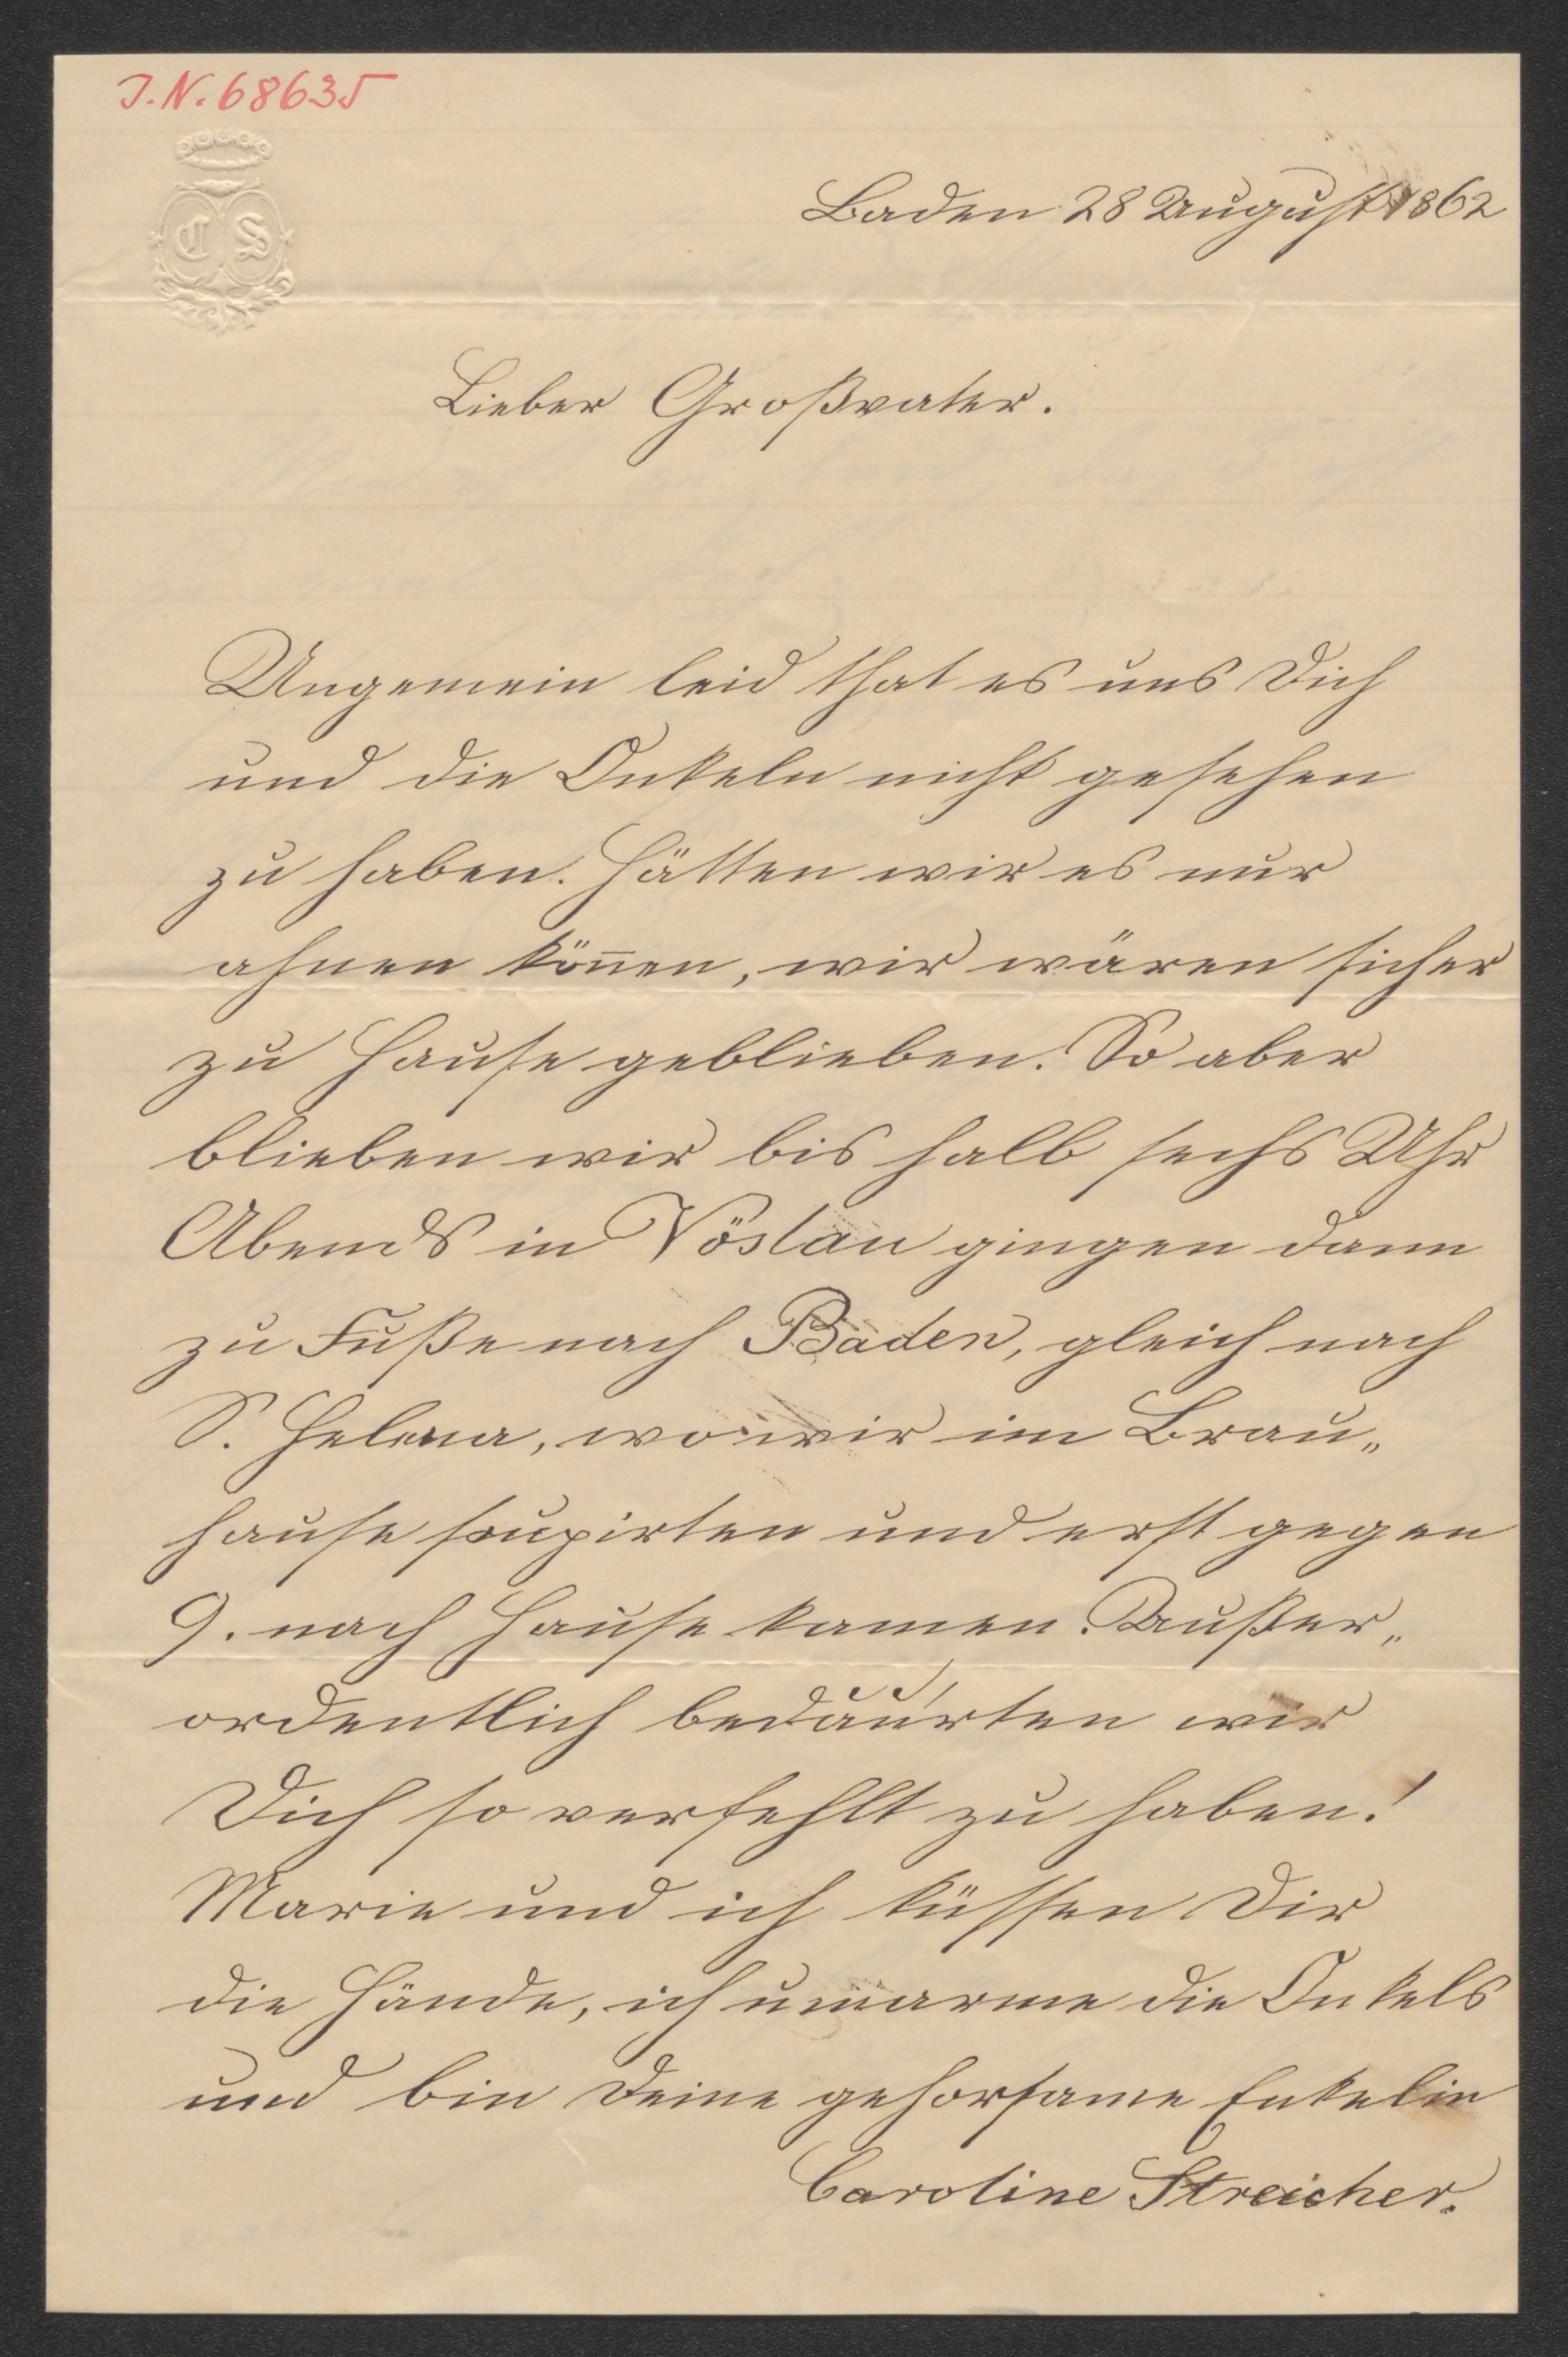 J.N. 68635
C S
Baden 28 August 1862
Lieber Großvater.
Ungemein leid that es uns Dich
und die Onkeln nicht gesehen
zu haben. Hätten wir es nur
ahnen kön̄en, wir wären sicher
zu Hause geblieben. So aber
blieben wir bis halb sechs Uhr
Abends in Vöslau gingen dann
zu Fuße nach Baden, gleich nach
S. Helena, wo wir im Brau„
hause soupirten und erst gegen
9. nach Hause kamen. Außer„
ordentlich bedauerten wir
Dich so verfehlt zu haben!
Marie und ich küssen Dir
die Hände, ich umarme die Onkels
und bin Deine gehorsame Enkelin
Caroline Streicher.